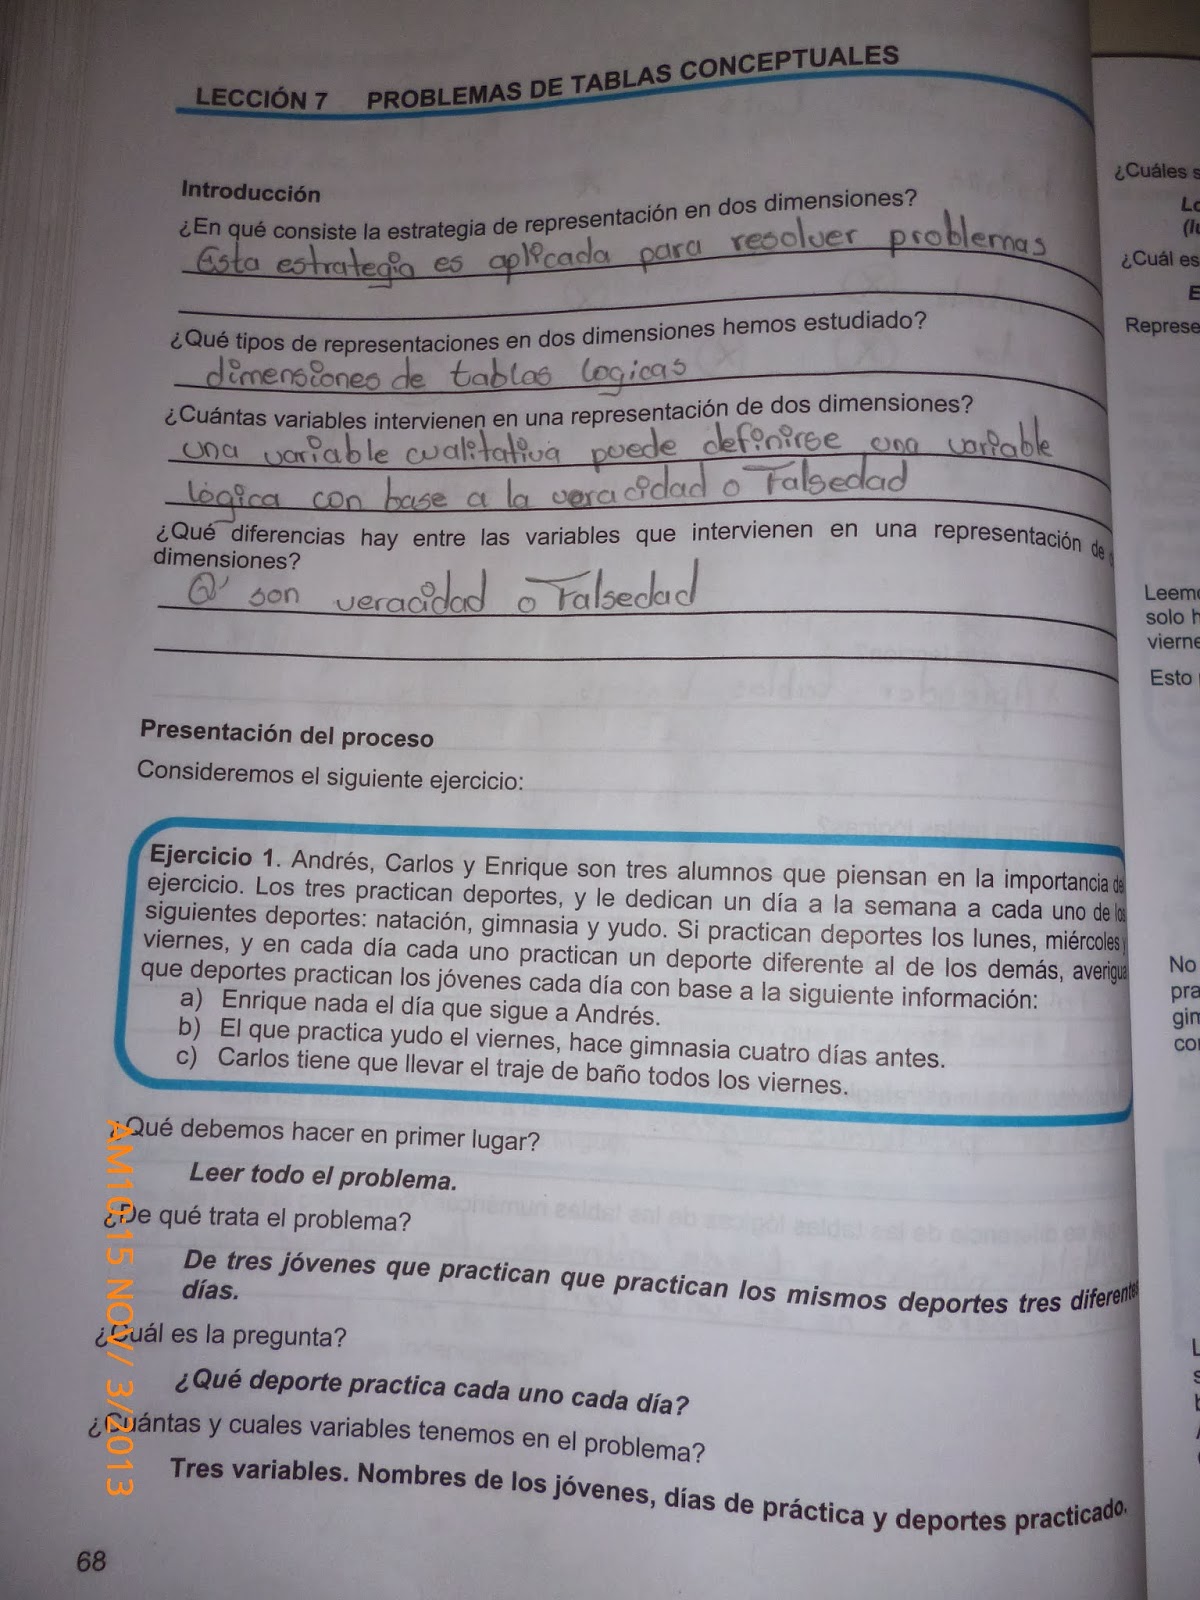 LECCIÓN 7 PROBLEMAS DE TABLAS CONCEPTUALES
Introducción
¿En qué consiste la estrategia de representación en dos dimensiones?
Esta estrategia es aplicada para resolver problemas
¿Qué tipos de representaciones en dos dimensiones hemos estudiado?
dimensiones de tablas logicas
¿Cuántas variables intervienen en una representación de dos dimensiones?
una variable cualitativa puede definirse una variable
lógica con base a la veracidad o Falsedad
¿Qué diferencias hay entre las variables que intervienen en una representación de
dimensiones?
Q' son veracidad o Falsedad
Presentación del proceso
Consideremos el siguiente ejercicio:
Ejercicio 1. Andrés, Carlos y Enrique son tres alumnos que piensan en la importancia del
ejercicio. Los tres practican deportes, y le dedican un día a la semana a cada uno de los
siguientes deportes: natación, gimnasia y yudo. Si practican deportes los lunes, miércoles y
viernes, y en cada día cada uno practican un deporte diferente al de los demás, averigua
que deportes practican los jóvenes cada día con base a la siguiente información:
a) Enrique nada el día que sigue a Andrés.
b) El que practica yudo el viernes, hace gimnasia cuatro días antes.
c) Carlos tiene que llevar el traje de baño todos los viernes.
¿Qué debemos hacer en primer lugar?
Leer todo el problema.
¿De qué trata el problema?
De tres jóvenes que practican que practican los mismos deportes tres diferentes
días.
¿Cuál es la pregunta?
¿Qué deporte practica cada uno cada día?
¿Cuántas y cuales variables tenemos en el problema?
Tres variables. Nombres de los jóvenes, días de práctica y deportes practicado.
68
AM10:15 NOV/ 3/2013
¿Cuáles
¿Cuál es
Represe
Leem
solo h
vierne
Esto
No
pra
gim